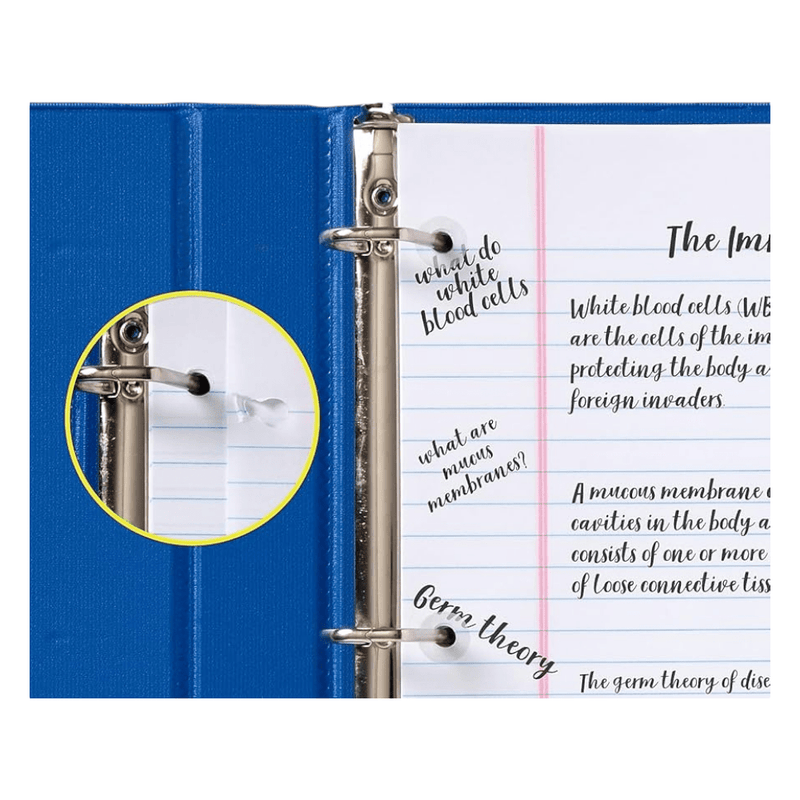 The
what do
white
blood cells
White blood cells
are the cells of the
protecting the body a
foreign invaders.
what are
mucous
membranes?
A mucous membrane
cavities in the body a
consists of one or more
of loose connective
Germ theory
The germ theory of